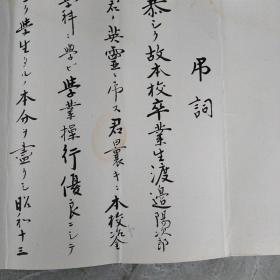 弔詞
恭シク故本校卒業生渡邉陽次郎
君ノ英霊ニ弔ス君曩キニ本校冶金
学科ニ學ビ學業操行優良ニシテ
ク學生タルノ本分ヲ盡クシ昭和十三